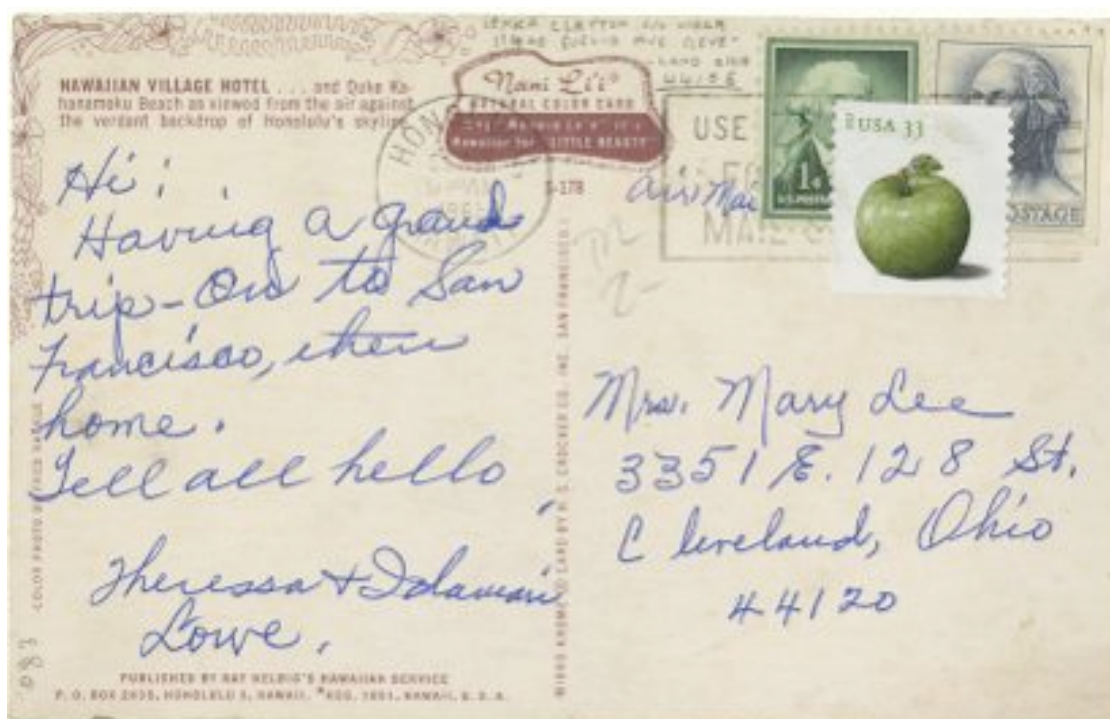 LENKA CLAYTON C/O
EUCLID AVE CLEVE-
LAND OHIO
HAWAIIAN VILLAGE HOTEL ... and Duke Ka-
hanamoku Beach as viewed from the air against
the verdant backdrop of Honolulu's skyline.
Nani Li'i®
NATURAL COLOR CARD
Hawaiian for "LITTLE BEAUTY"
S-178
HON
USE
MAIL
1¢
U.S. POSTAGE
USA 33
POSTAGE
Air Mail
Hi!
Having a grand
trip - On to San
Francisco, then
home.
Tell all hello
Theressa + Idamari
Lowe.
Mrs. Mary Lee
3351 E. 128 St.
Cleveland, Ohio
44120
COLOR PHOTO BY
MIRRO-KROME CARD BY H. S. CROCKER CO., INC. SAN FRANCISCO
083
PUBLISHED BY RAY HELBIG'S HAWAIIAN SERVICE
P. O. BOX 2835, HONOLULU 3, HAWAII. ®REG. 1951, HAWAII, U.S.A.